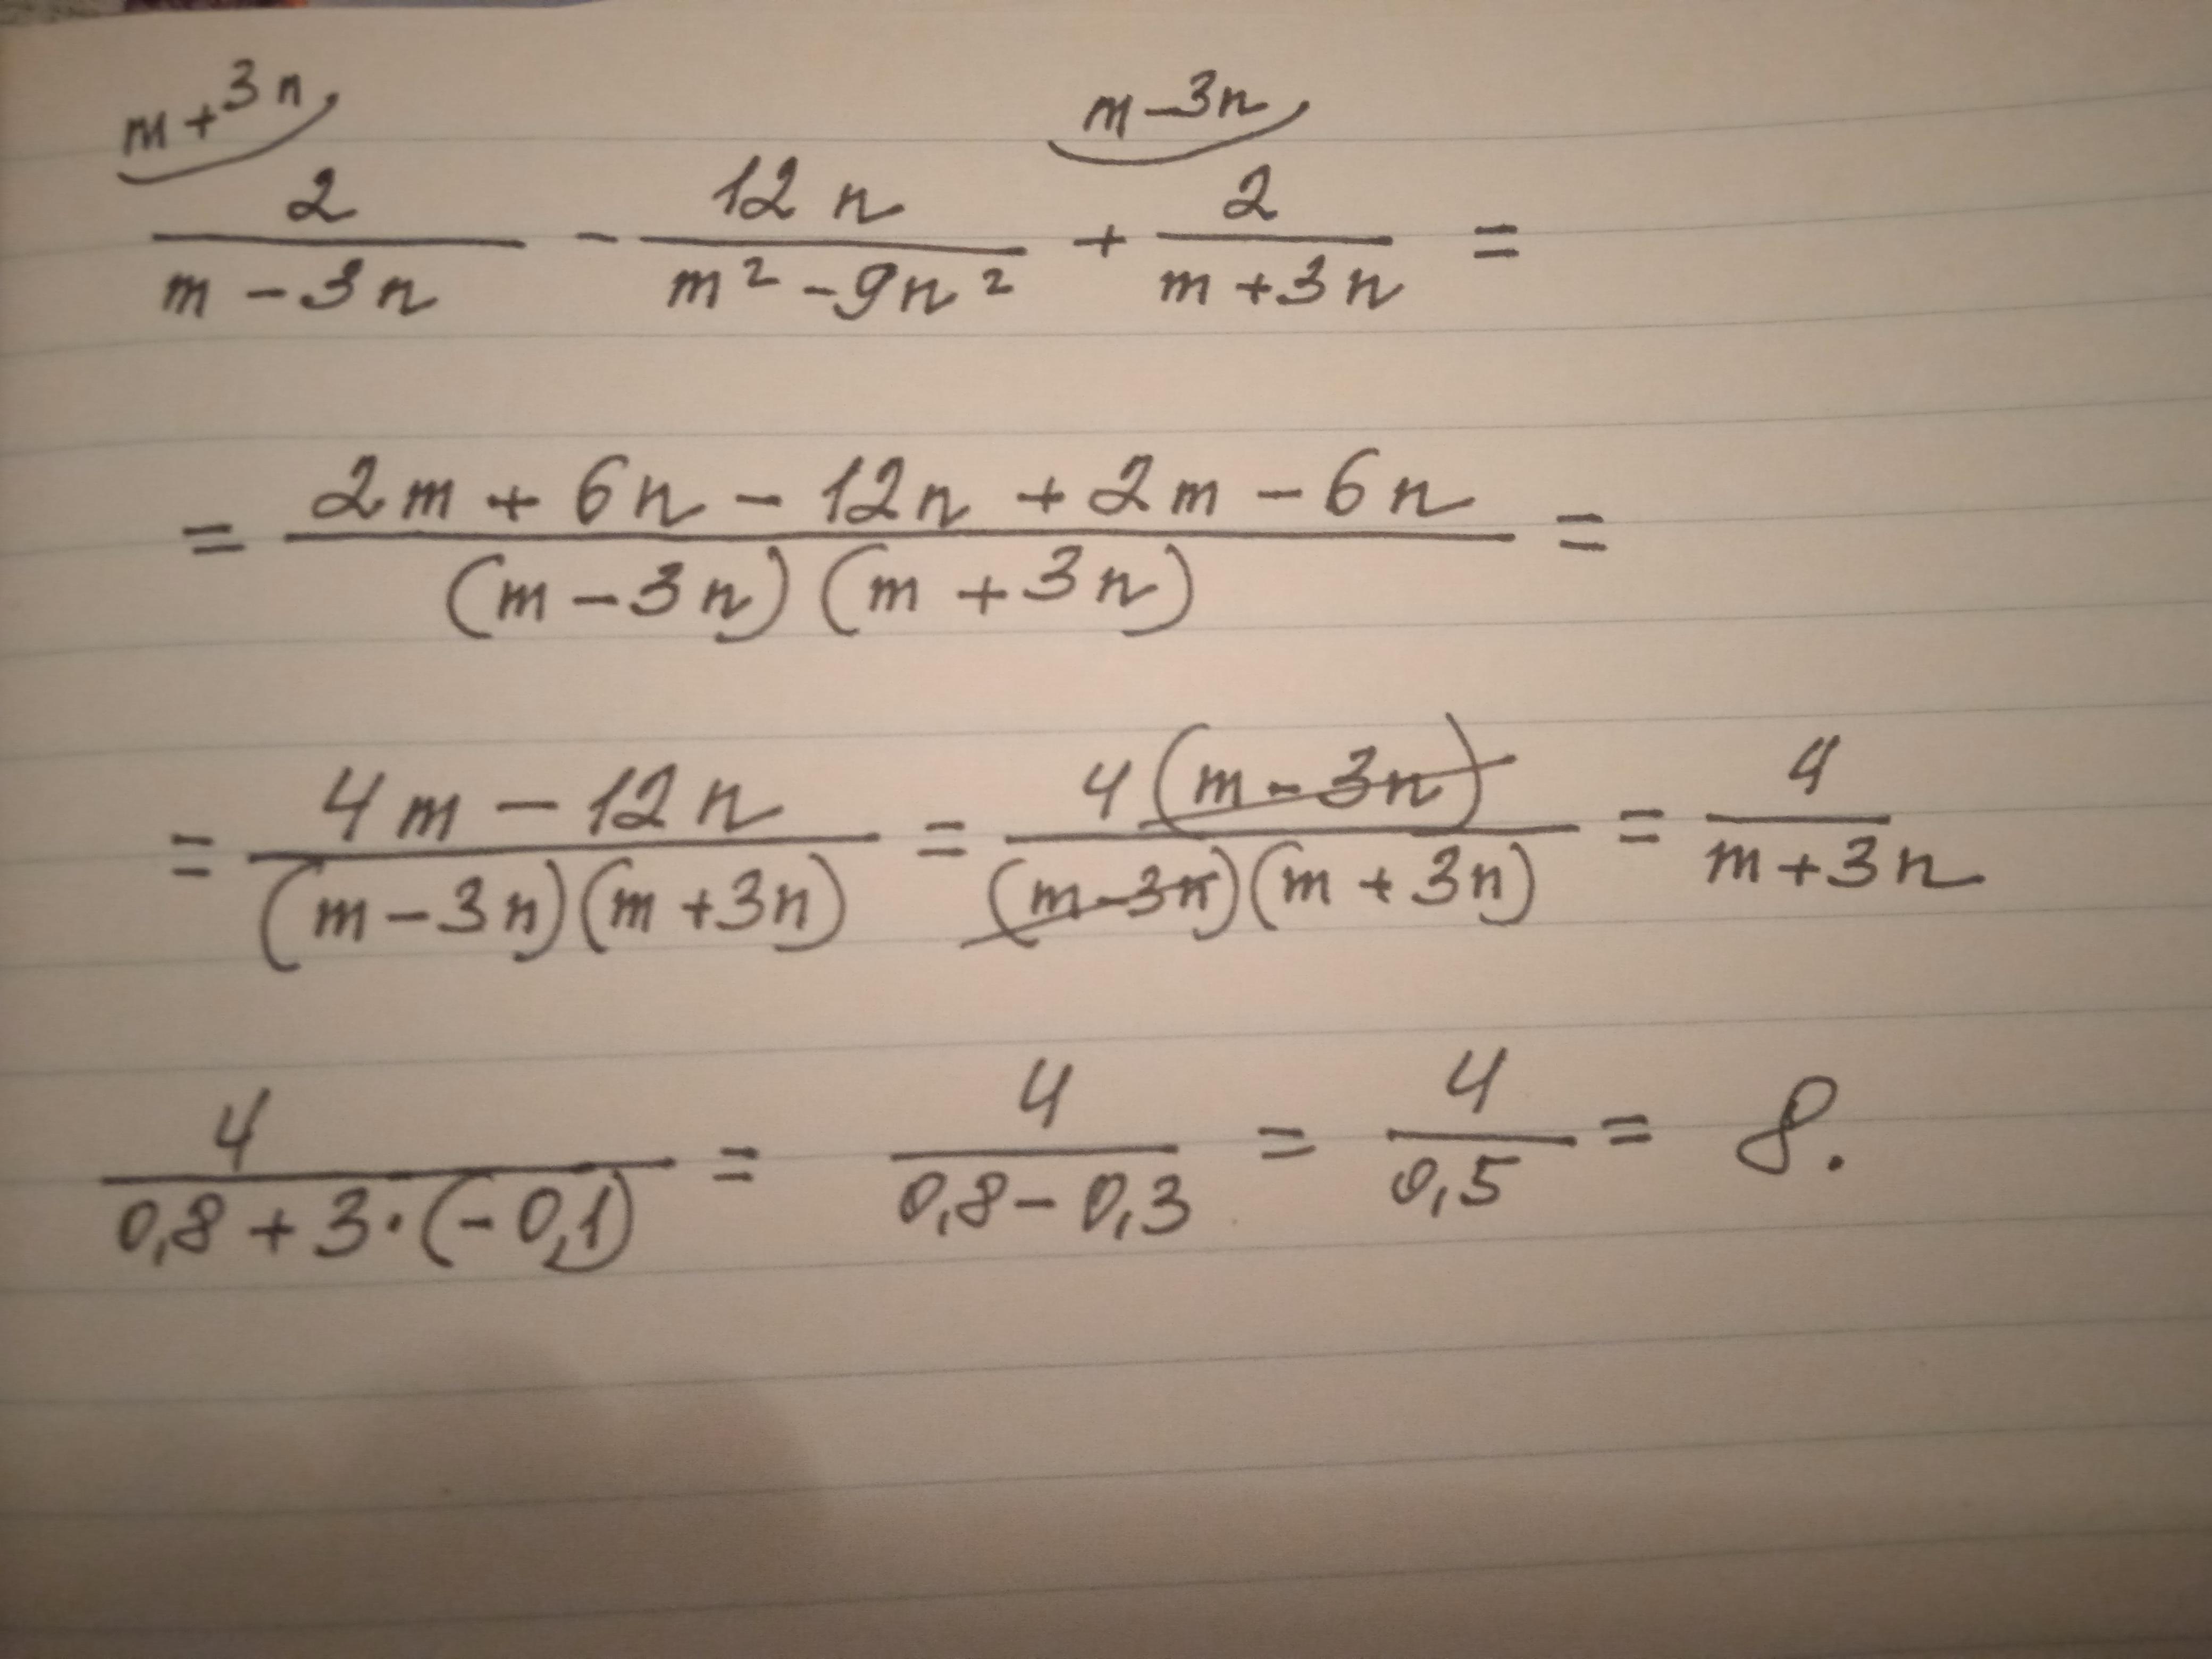 m+3n m-3n
2/(m-3n) - 12n/(m²-9n²) + 2/(m+3n) =
= (2m+6n-12n+2m-6n)/((m-3n)(m+3n)) =
= (4m-12n)/((m-3n)(m+3n)) = 4(m-3n)/((m-3n)(m+3n)) = 4/(m+3n)
4/(0,8+3·(-0,1)) = 4/(0,8-0,3) = 4/0,5 = 8.